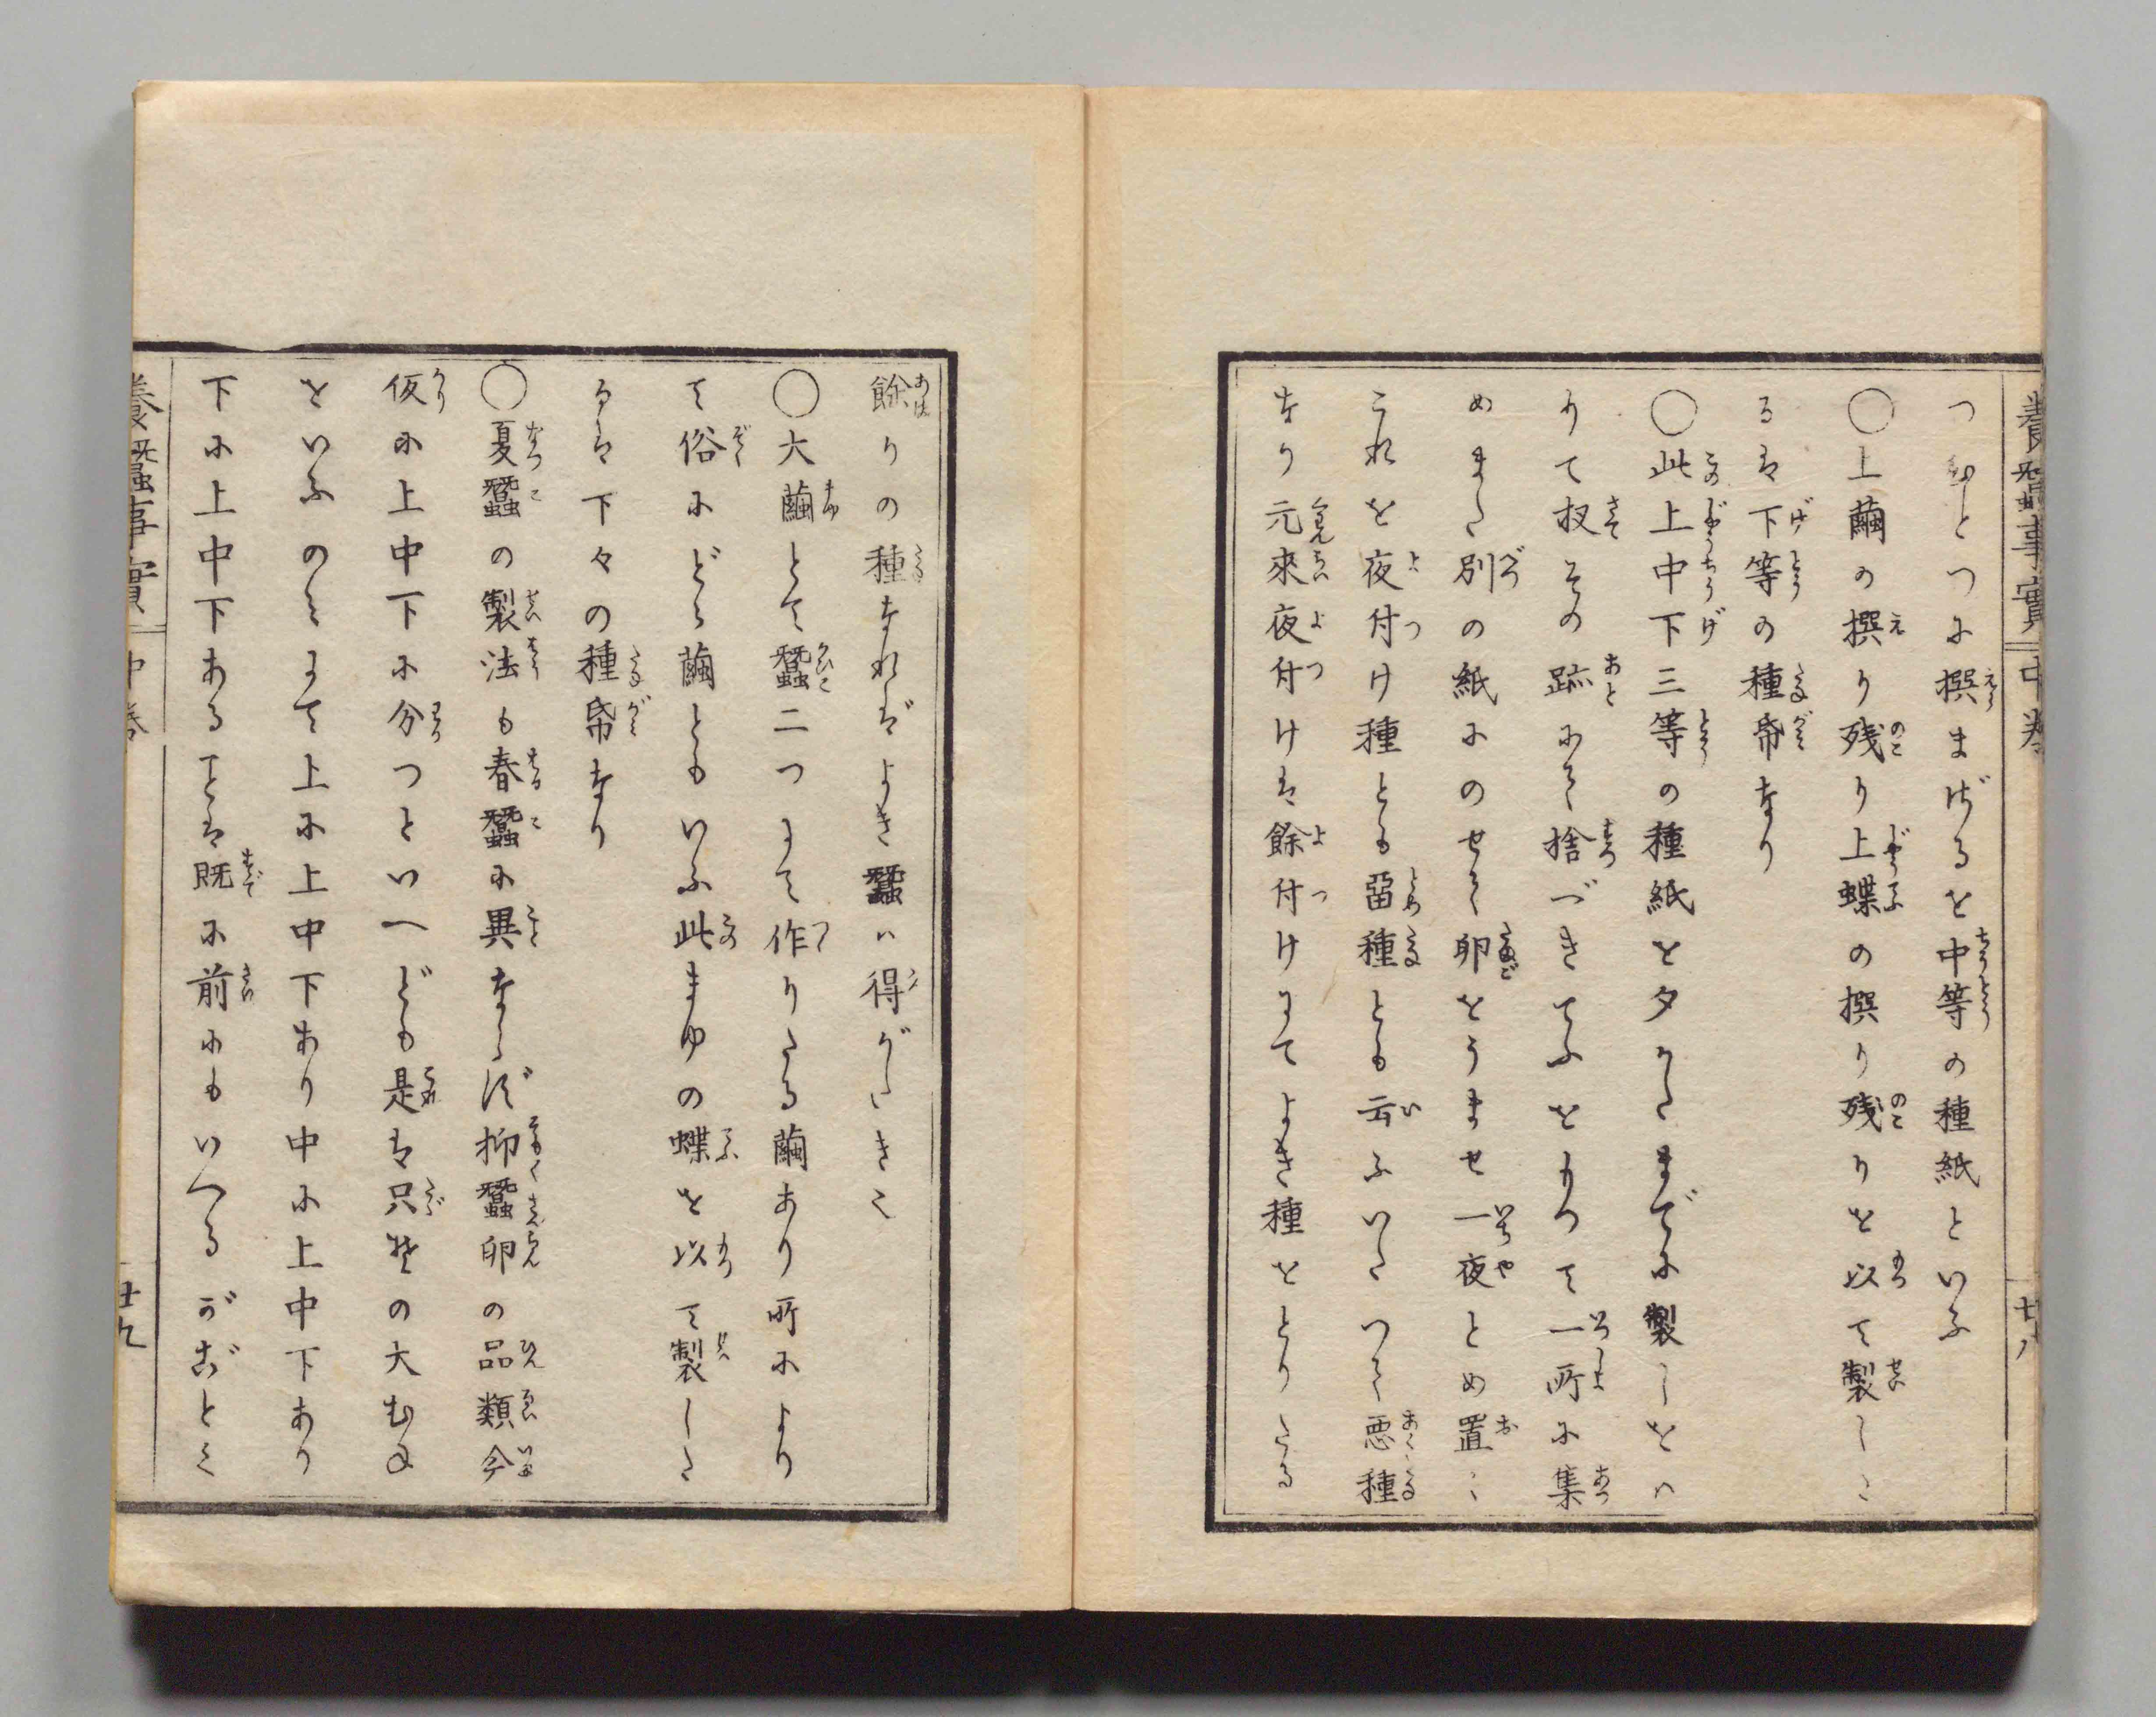 養蠶事實 中巻
つひとつに撰まざるを中等の種紙といふ
○上繭の撰り残り上蝶の撰り残りを以て製した
るは下等の種帋なり
○此上中下三等の種紙を夕かたまでに製しをは
りて扨その跡にて捨べきてふをもつて一所に集
めまた別の紙にのせて卵をうませ一夜とめ置く
これを夜付け種とも畱種とも云ふいたつて悪種
なり元来夜付けは餘付けにてよき種をとりたる
餘りの種なればよき蠶ハ得がたきこ
○大繭とて蠶二つにて作りたる繭あり所により
て俗にどら繭ともいふ此まゆの蝶を以て製した
るは下々の種帋なり
○夏蠶の製法も春蠶に異ならず抑蠶卵の品類今
仮に上中下に分つといへども是は只其の大むね
をいふのみにて上に上中下あり中に上中下あり
下に上中下あることは既に前にもいへるがごとく
養蠶事實 中巻 廿九